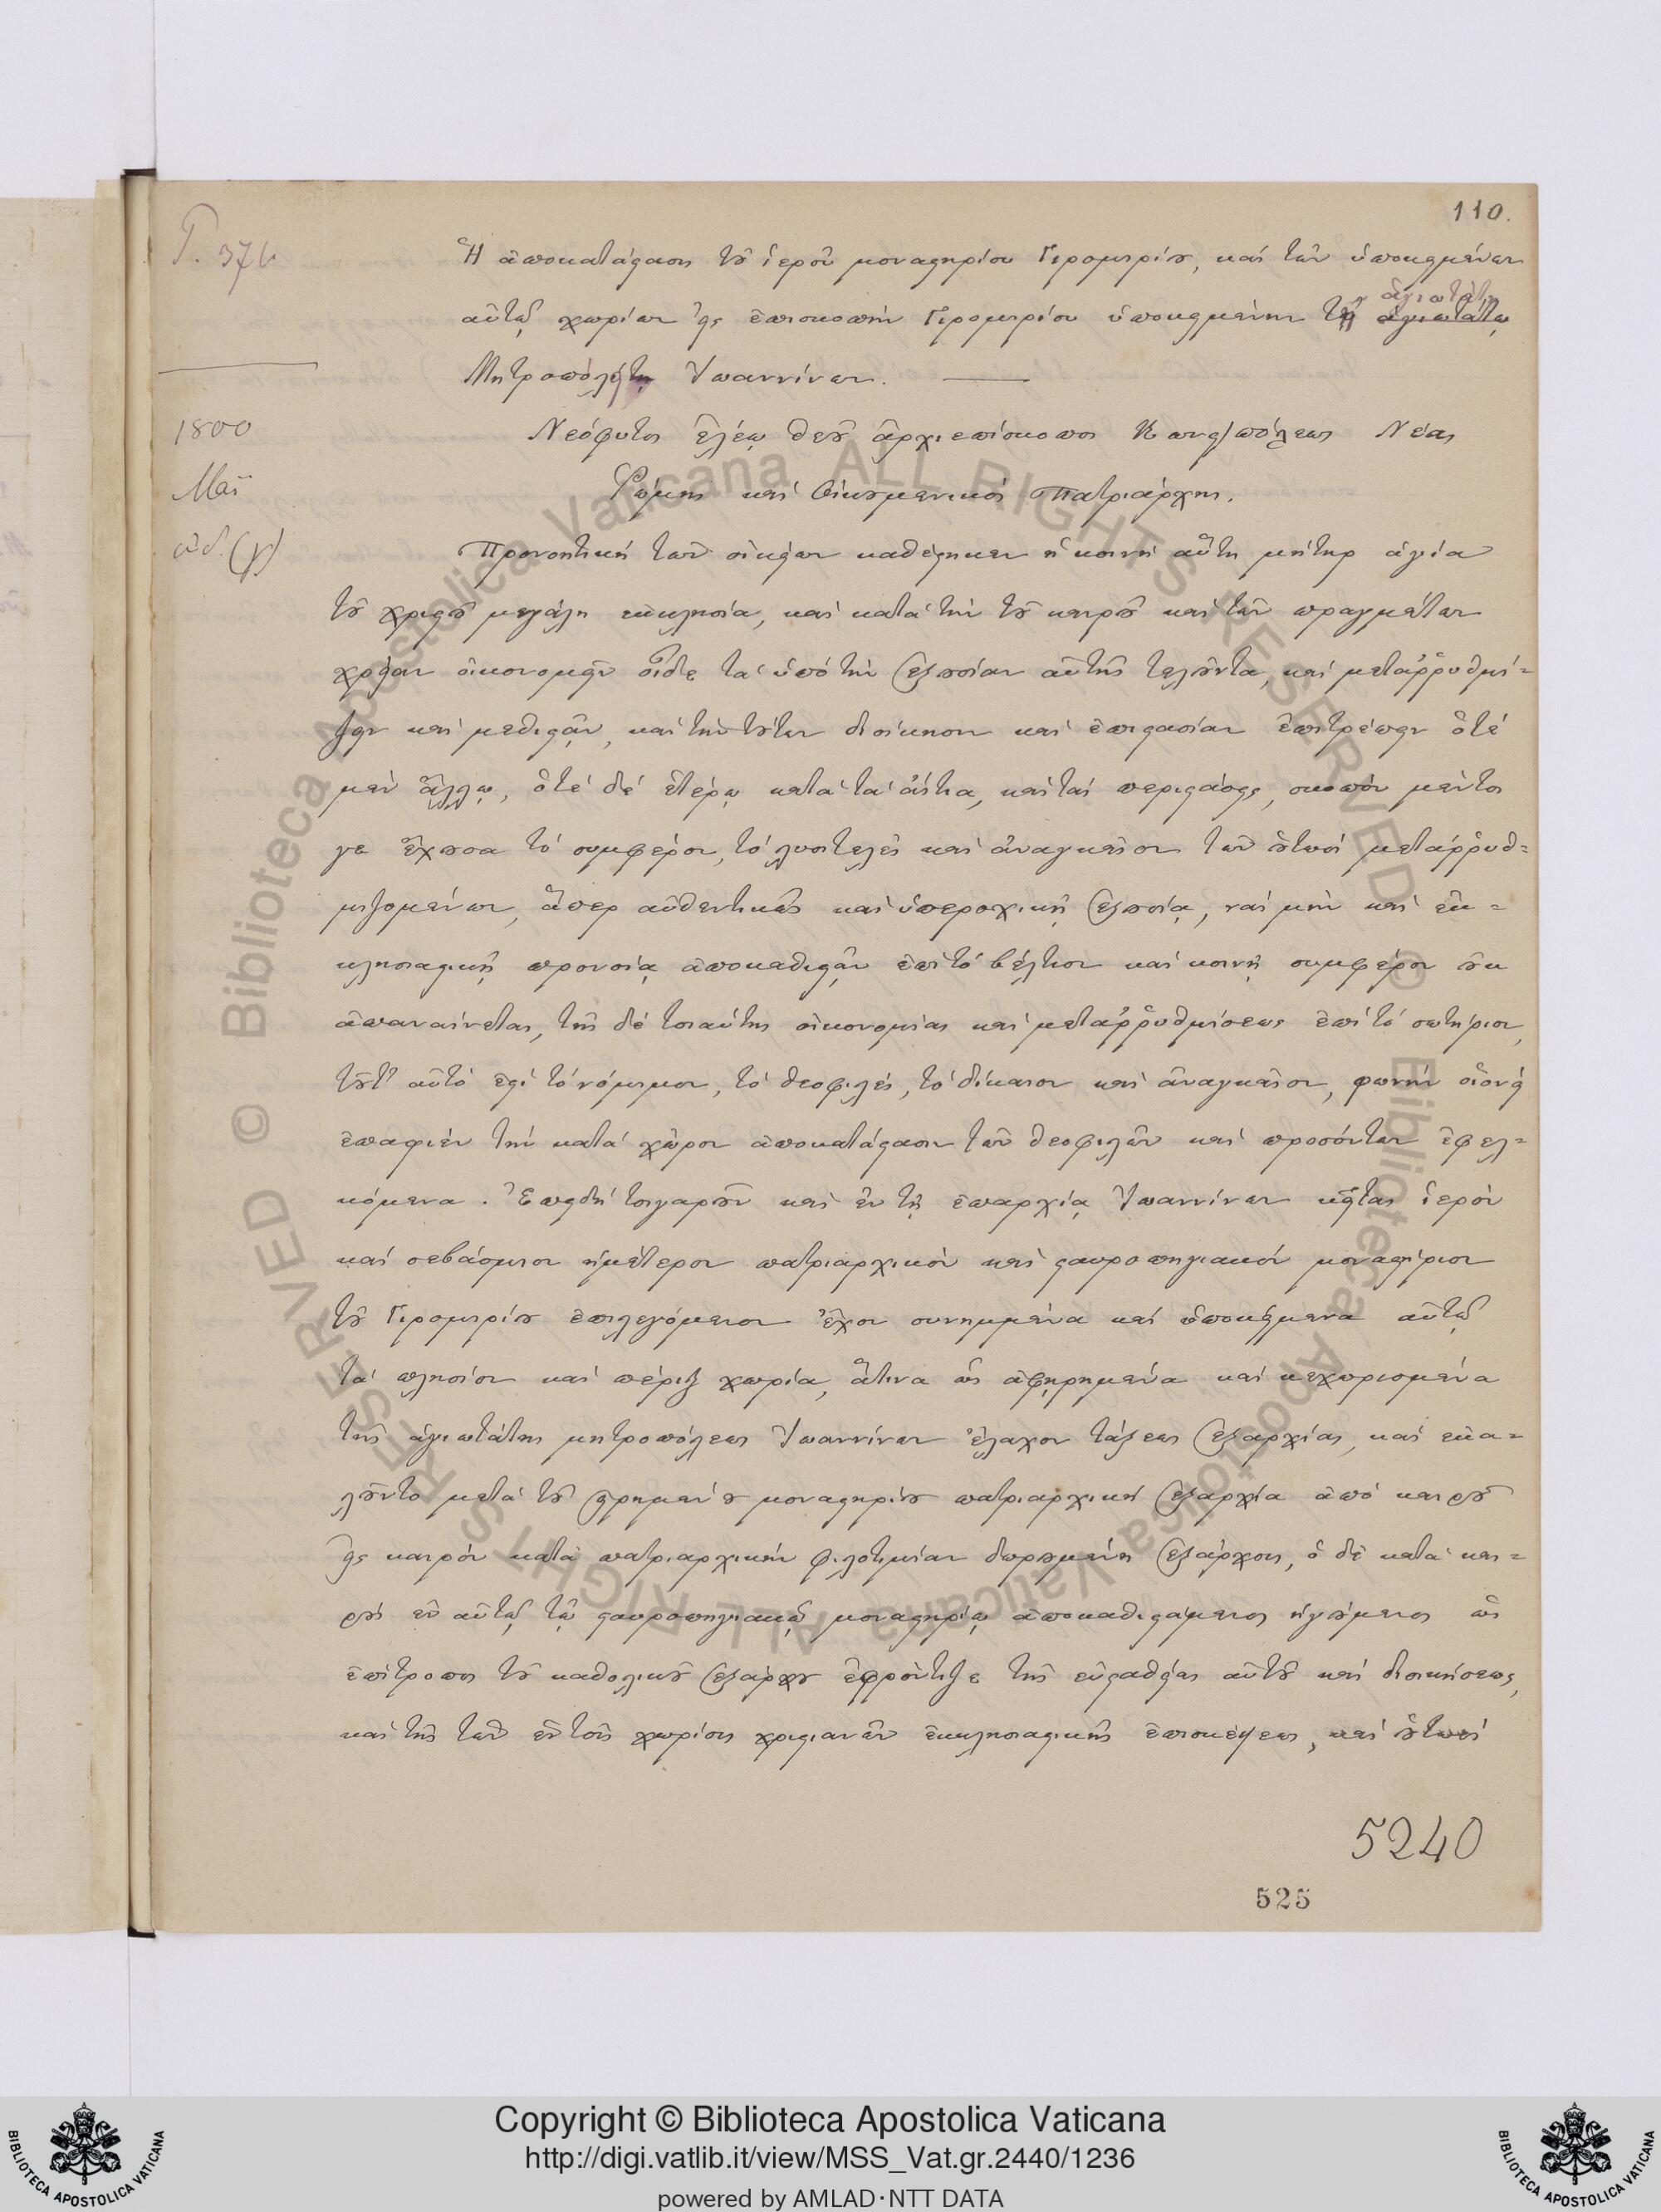 110.
Γ. 376
Ἡ ἀποκατάστασις τοῦ ἱεροῦ μοναστηρίου Γηρομηρίου, καὶ τῶν ὑποκειμένων
ἁγιωτάτῃ
αὐτῷ χωρίων εἰς ἐπισκοπὴν Γηρομηρίου ὑποκειμένην τῇ ἁγιωτάτῳ
Μητροπόλει Ἰωαννίνων.
1800
Μαΐ
ἰνδ. (γ)
Νεόφυτος ἐλέῳ θεοῦ ἀρχιεπίσκοπος Κωνστ/πόλεως Νέας
Ῥώμης καὶ Οἰκουμενικὸς Πατριάρχης.
Προνοητικὴ τῶν οἰκείων καθέστηκεν ἡ κοινὴ αὕτη μήτηρ ἁγία
τοῦ χριστοῦ μεγάλη ἐκκλησία, καὶ κατὰ τὴν τοῦ καιροῦ καὶ τῶν πραγμάτων
χρείαν οἰκονομεῖν οἶδε τὰ ὑπὸ τὴν ἐξουσίαν αὐτῆς τελοῦντα, καὶ μεταῤῥυθμί-
ζειν καὶ μεθιστᾶν, καὶ τὴν τούτων διοίκησιν καὶ ἐπιστασίαν ἐπιτρέπειν ὁτὲ
μὲν ἄλλῳ, ὁτὲ δὲ ἑτέρῳ κατὰ τὰ αἴτια, καὶ τὰς περιστάσεις, σκοπὸν μέντοι
γε ἔχουσα τὸ συμφέρον, τὸ λυσιτελὲς καὶ ἀναγκαῖον τῶν οὑτωσὶ μεταῤῥυθ-
μιζομένων, ἅπερ αὐθεντικῶς καὶ ὑπεροχικῇ ἐξουσίᾳ, ναὶ μὴν καὶ ἐκ-
κλησιαστικῇ προνοίᾳ ἀποκαθιστᾶν ἐπὶ τὸ βέλτιον καὶ κοινῇ συμφέρον οὐκ
ἀπαναίνεται, τῆς δὲ τοιαύτης οἰκονομίας καὶ μεταῤῥυθμίσεως ἐπὶ τὸ σωτήριον,
τοῦτ' αὐτὸ ἐστὶ τὸ νόμιμον, τὸ θεοφιλὲς, τὸ δίκαιον καὶ ἀναγκαῖον, φωνὴν οἱονεὶ
ἐπαφιὲν τὴν κατὰ χῶρον ἀποκατάστασιν τῶν θεοφιλῶν καὶ προσόντων ἐφελ-
κόμενα. Ἐπειδὴ τοιγαροῦν καὶ ἐν τῇ ἐπαρχίᾳ Ἰωαννίνων κεῖται ἱερὸν
καὶ σεβάσμιον ἡμέτερον πατριαρχικὸν καὶ σταυροπηγιακὸν μοναστήριον
τοῦ Γηρομηρίου ἐπιλεγόμενον ἔχον συνημμένα καὶ ὑποκείμενα αὐτῷ
τὰ πλησίον καὶ πέριξ χωρία, ἅτινα ὡς ἀφῃρημένα καὶ κεχωρισμένα
τῆς ἁγιωτάτης μητροπόλεως Ἰωαννίνων ἔλαχον τάξεως ἐξαρχίας, καὶ ἐκα-
λοῦντο μετὰ τοῦ εἰρημένου μοναστηρίου πατριαρχικὴ ἐξαρχία ἀπὸ καιροῦ
εἰς καιρὸν κατὰ πατριαρχικὴν φιλοτιμίαν δωρουμένη ἐξάρχοις, ὁ δὲ κατὰ και-
ροὺς ἐν αὐτῷ τῷ σταυροπηγιακῷ μοναστηρίῳ ἀποκαθιστάμενος ἡγούμενος ὡς
ἐπίτροπος τοῦ καθολικοῦ ἐξάρχου ἐφρόντιζε τῆς εὐσταθείας αὐτοῦ καὶ διοικήσεως,
καὶ τῆς τῶν ἐν τοῖς χωρίοις χριστιανῶν ἐκκλησιαστικῆς ἐπισκέψεως, καὶ οὑτωσὶ
5240
525
© Biblioteca Apostolica Vaticana ALL RIGHTS RESERVED © Biblioteca Apostolica Vaticana ALL RIGHTS RESERVED
Copyright © Biblioteca Apostolica Vaticana
http://digi.vatlib.it/view/MSS_Vat.gr.2440/1236
powered by AMLAD·NTT DATA
BIBLIOTECA APOSTOLICA VATICANA
BIBLIOTECA APOSTOLICA VATICANA